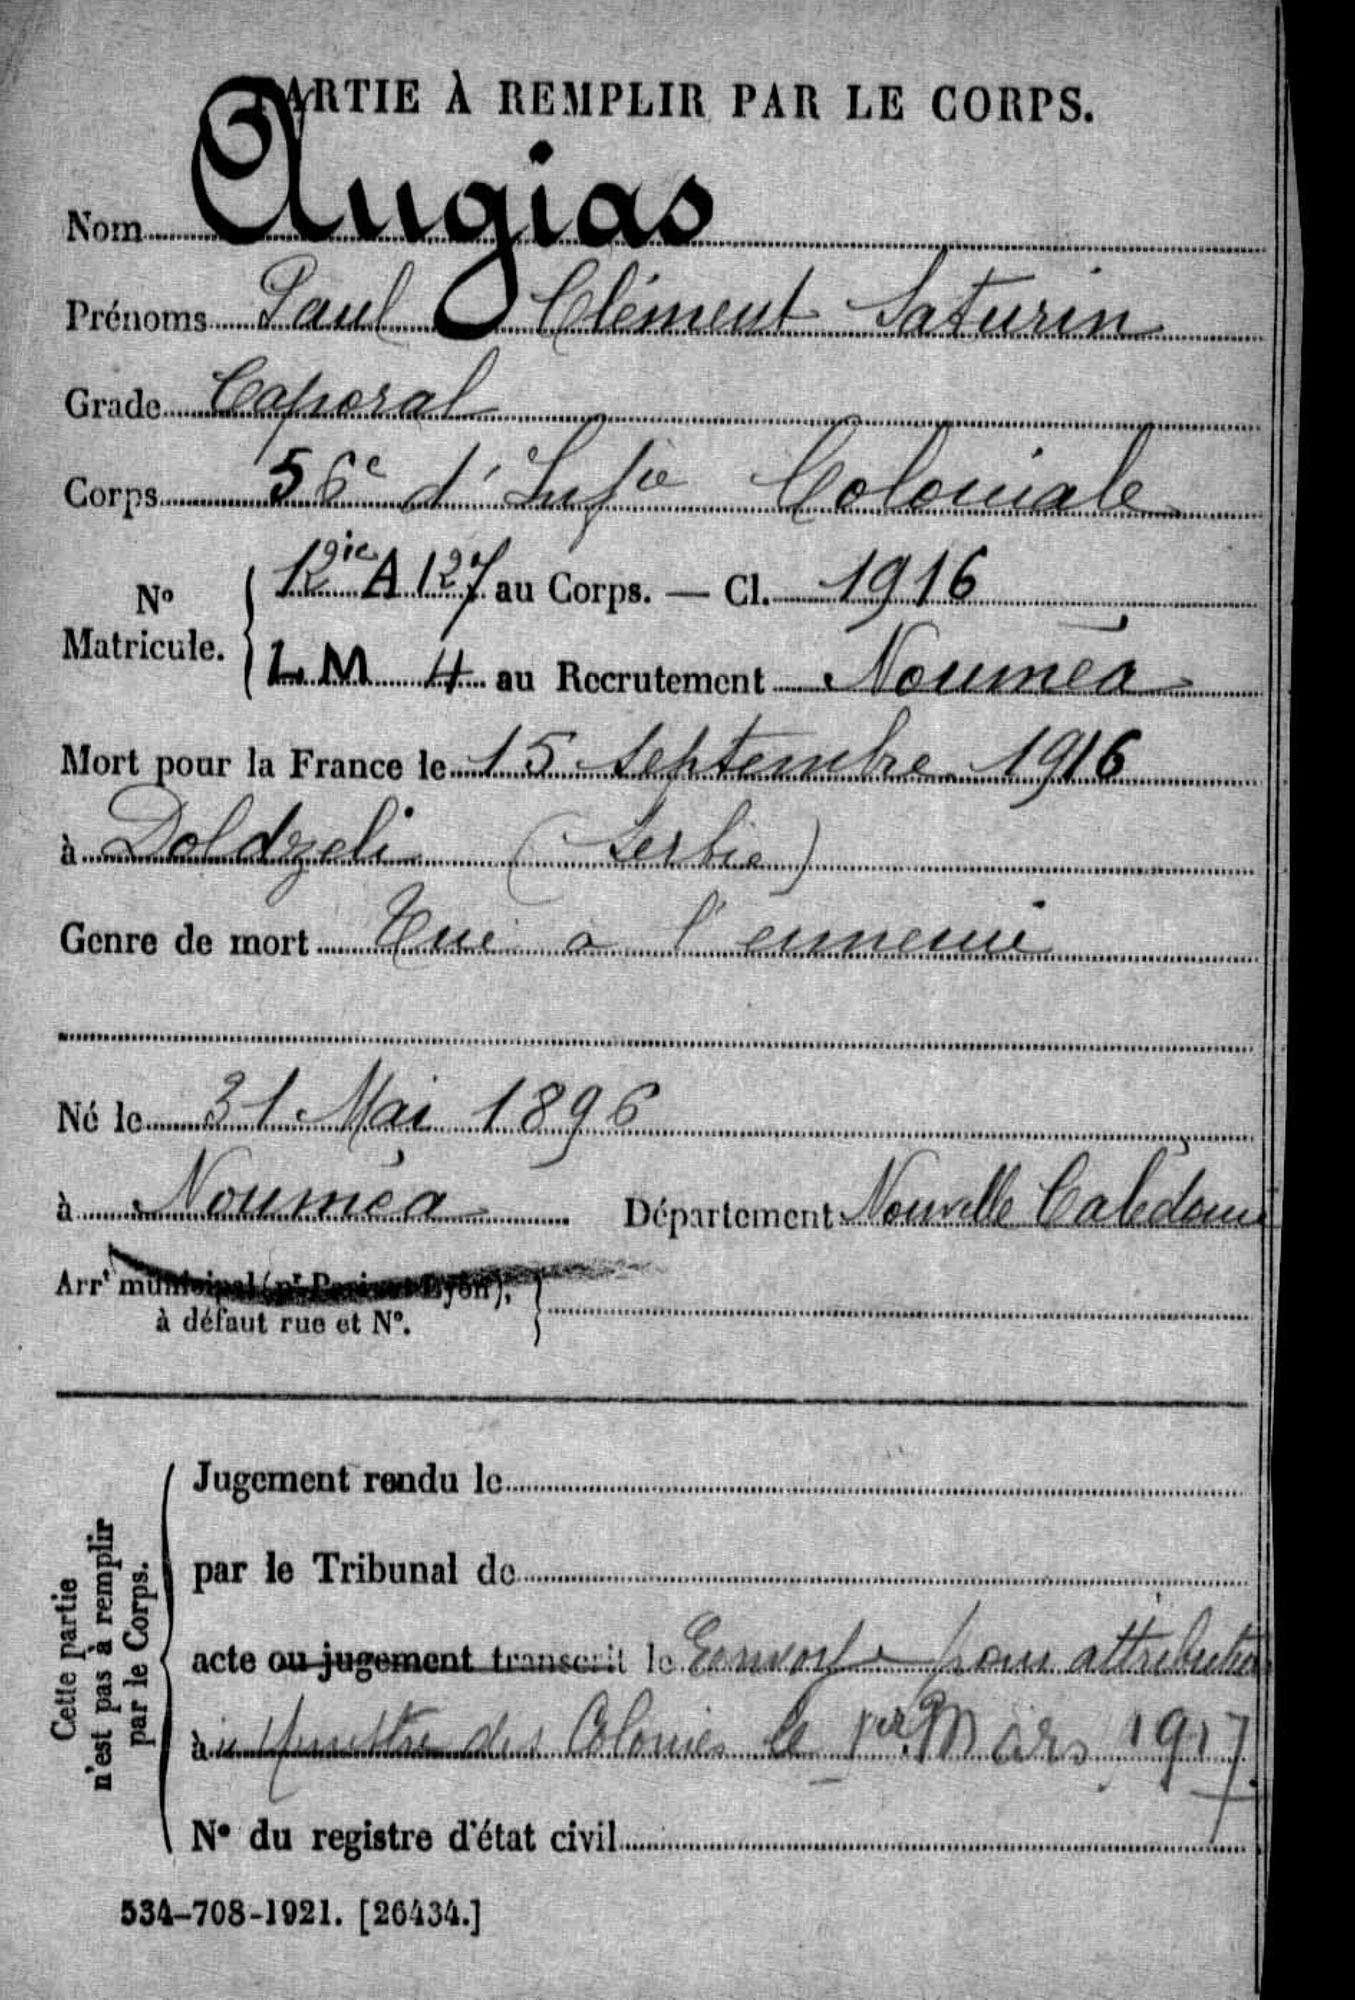 PARTIE À REMPLIR PAR LE CORPS.
Nom Augias
Prénoms Paul Clément Saturin
Grade Caporal
Corps 56e d'Infie Coloniale
No Matricule. { 12ie A 127 au Corps. — Cl. 1916
LM 4 au Recrutement Nouméa
Mort pour la France le 15 Septembre 1916
à Doldzeli (Serbie)
Genre de mort Tué a l'ennemi
Né le 31 Mai 1896
à Nouméa Département Nouvelle Calédonie
Arrt municipal (pr Paris et Lyon),
à défaut rue et N°.
Cette partie
n'est pas à remplir
par le Corps.
Jugement rendu le
par le Tribunal de
acte ou jugement transcrit le Envoyé pour attribution
à u Ministre des Colonies le 1er Mars 1917
N° du registre d'état civil
534-708-1921. [26434.]